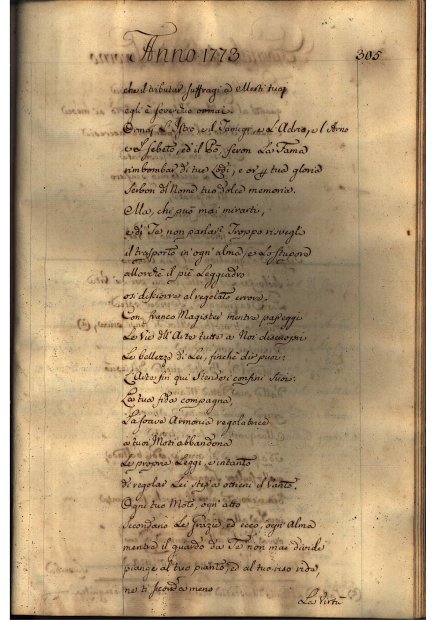 Anno 1773
305
che il tributar suffragi a Merti tuoi
egli è soverchio omai.
L'Istro, e il Tamigi, e L'Adria, e l'Arno
e il Sebeto, ed il Pò, feron La Fama
rimbombar di tue Lodi, e or tua gloria
serban di Nome tuo dolce memoria.
Ma, chi può mai mirarti,
e di Te non parlar? Troppo risveglia
il trasporto in ogn'alma, e Lo stupore
allorchè il piè Leggiadro
osi disciorre al regolato errore.
Con franco Magister mentre passeggi
Le vie dell'Arte tutte a Noi discuopri
Le bellezze di Lei, finchè dir puoi:
L'Arte fin qui stende i confini suoi.
La tua fida compagna
La soave Armonia regolatrice
a tuoi Moti abbandona
Le proprie Leggi, e intanto
di regolar Lei stessa ottieni il Vanto.
Ogni tuo Moto, ogn'atto
secondano Le Grazie, ed ecco, ogn'Alma
mentre il guardo da Te non mai divide
piange al tuo pianto, ed al tuo riso ride,
ne ti
La Virtù